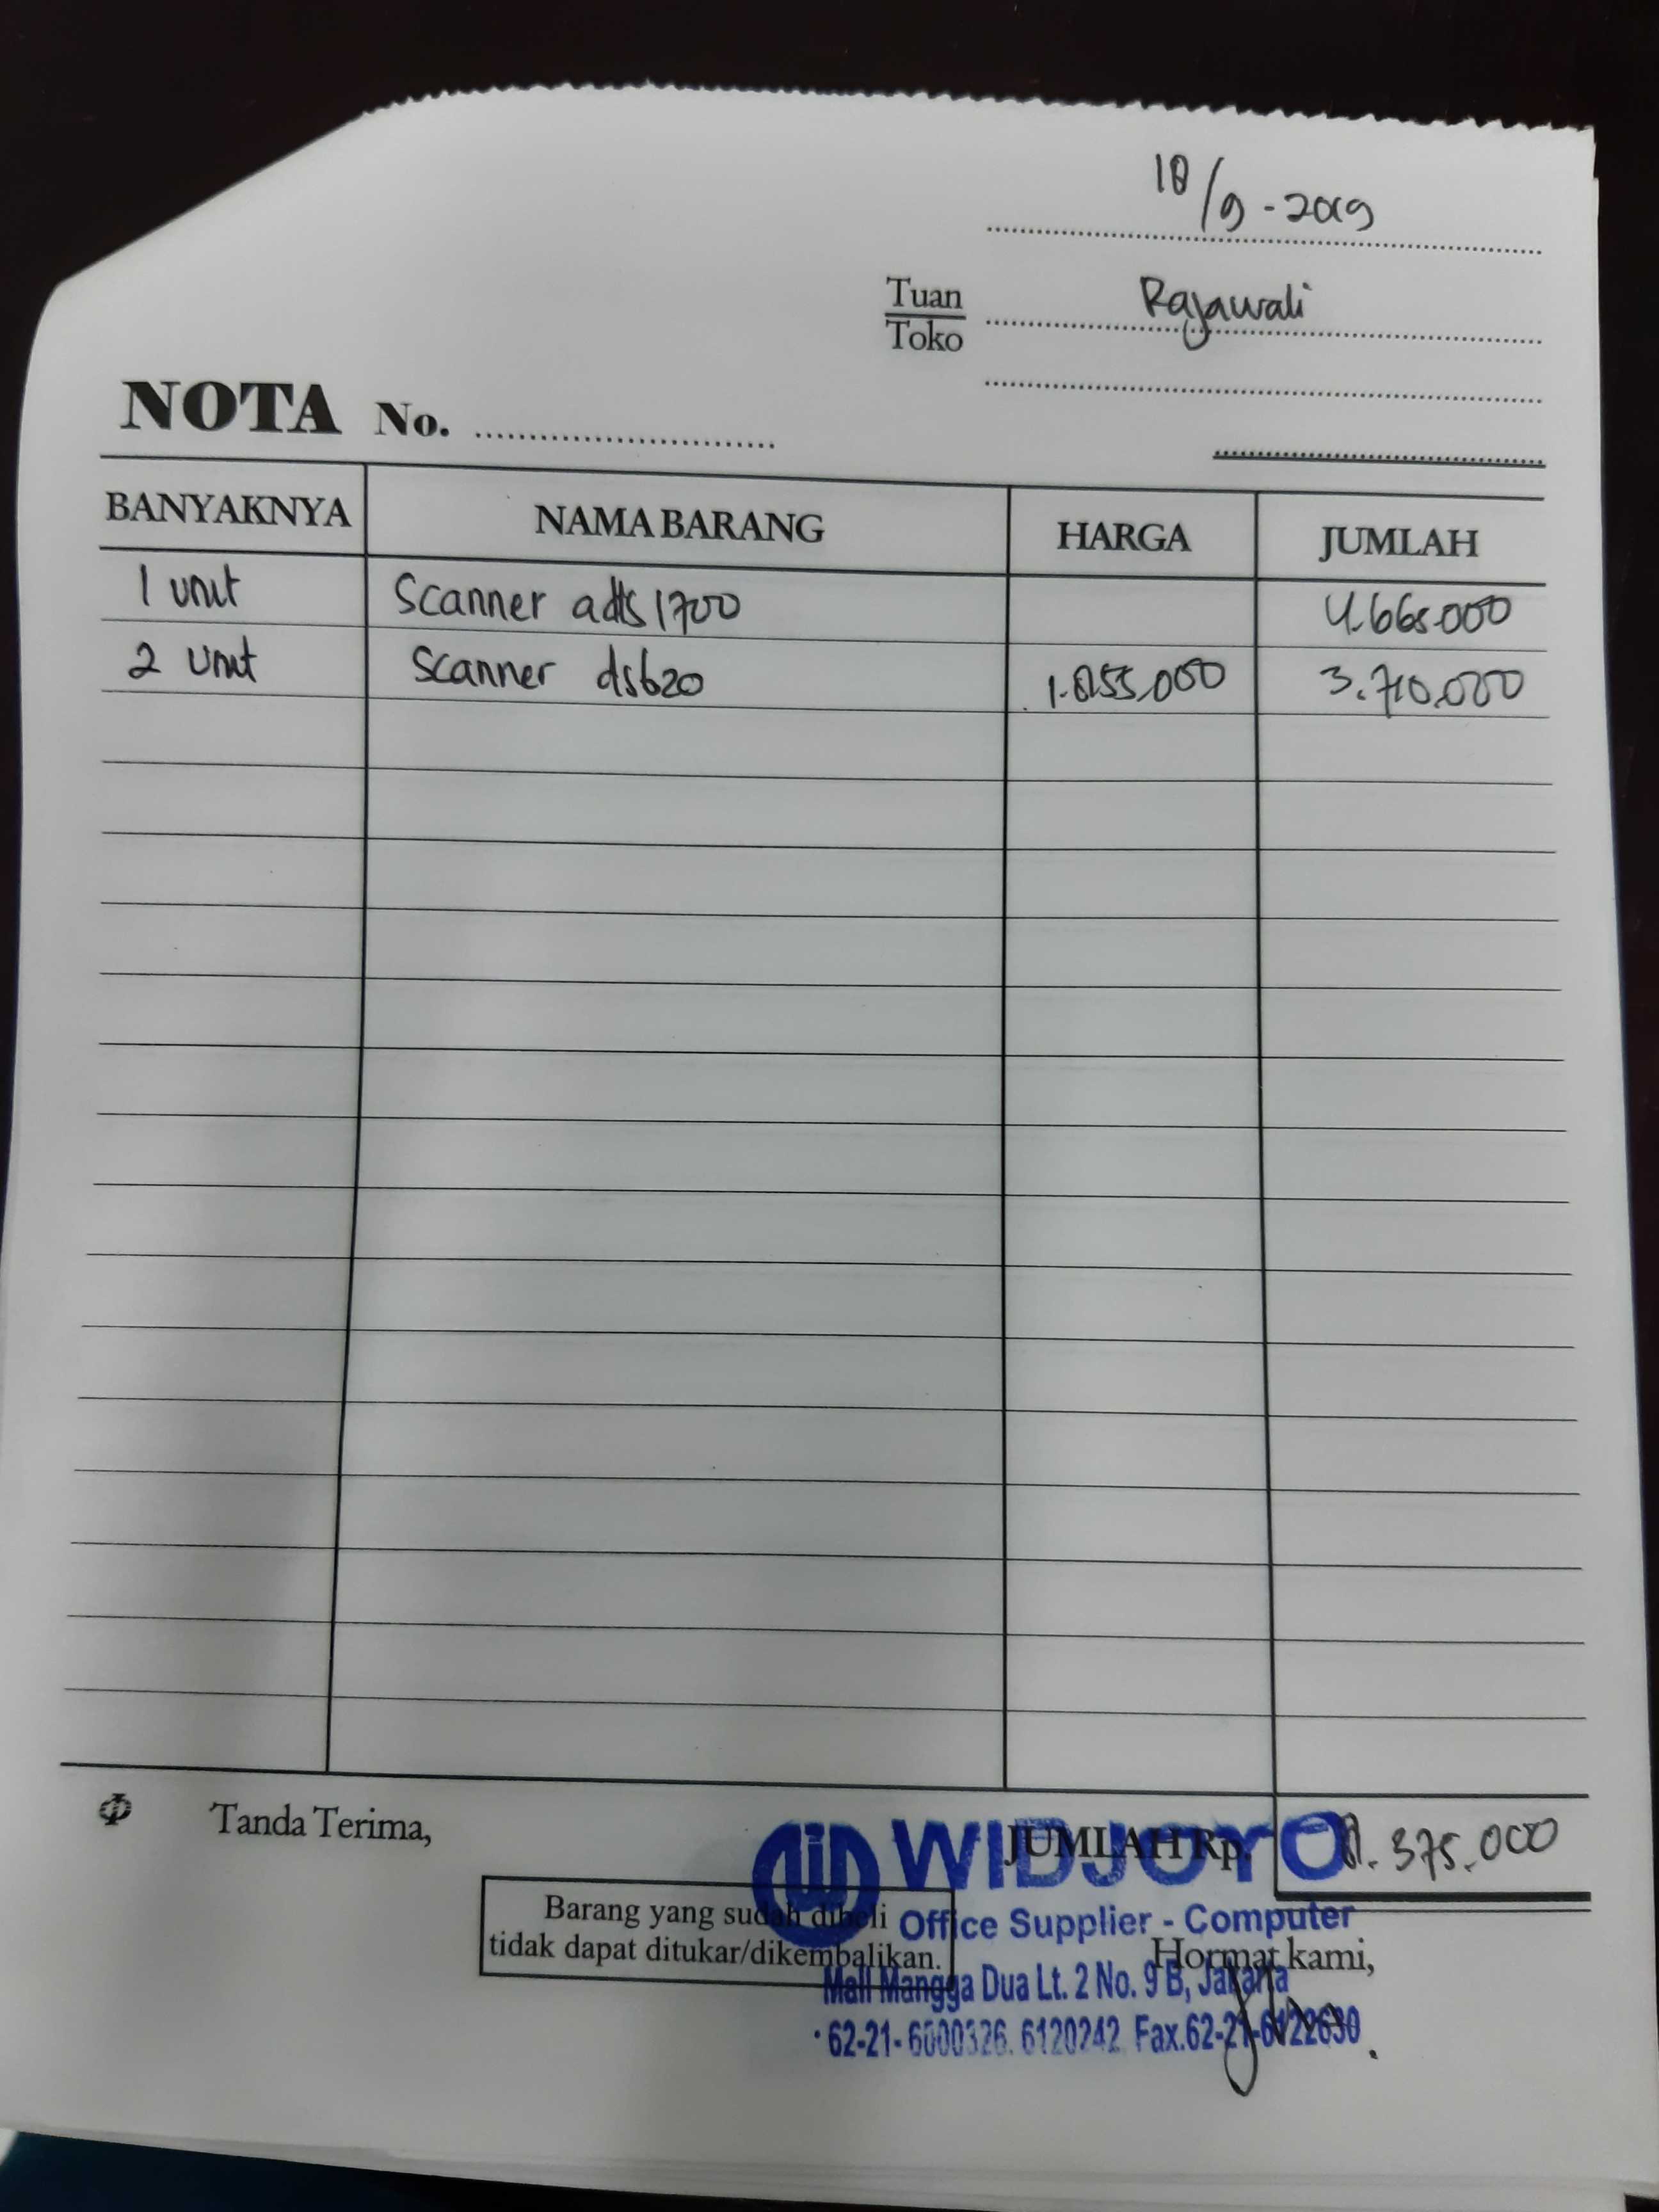 18/9-2019
Tuan
Toko
Rajawali
NOTA No.
BANYAKNYA NAMA BARANG HARGA JUMLAH
1 unit Scanner ads 1700 4.665.000
2 unit Scanner ds620 1.855.000 3.710.000
Tanda Terima,
JUMLAH Rp. 8.375.000
WIDJOYO
Barang yang sudah dibeli
tidak dapat ditukar/dikembalikan.
Office Supplier - Computer
Hormat kami,
Mall Mangga Dua Lt. 2 No. 9 B, Jakarta
62-21- 6000326. 6120242 Fax.62-21-6122630